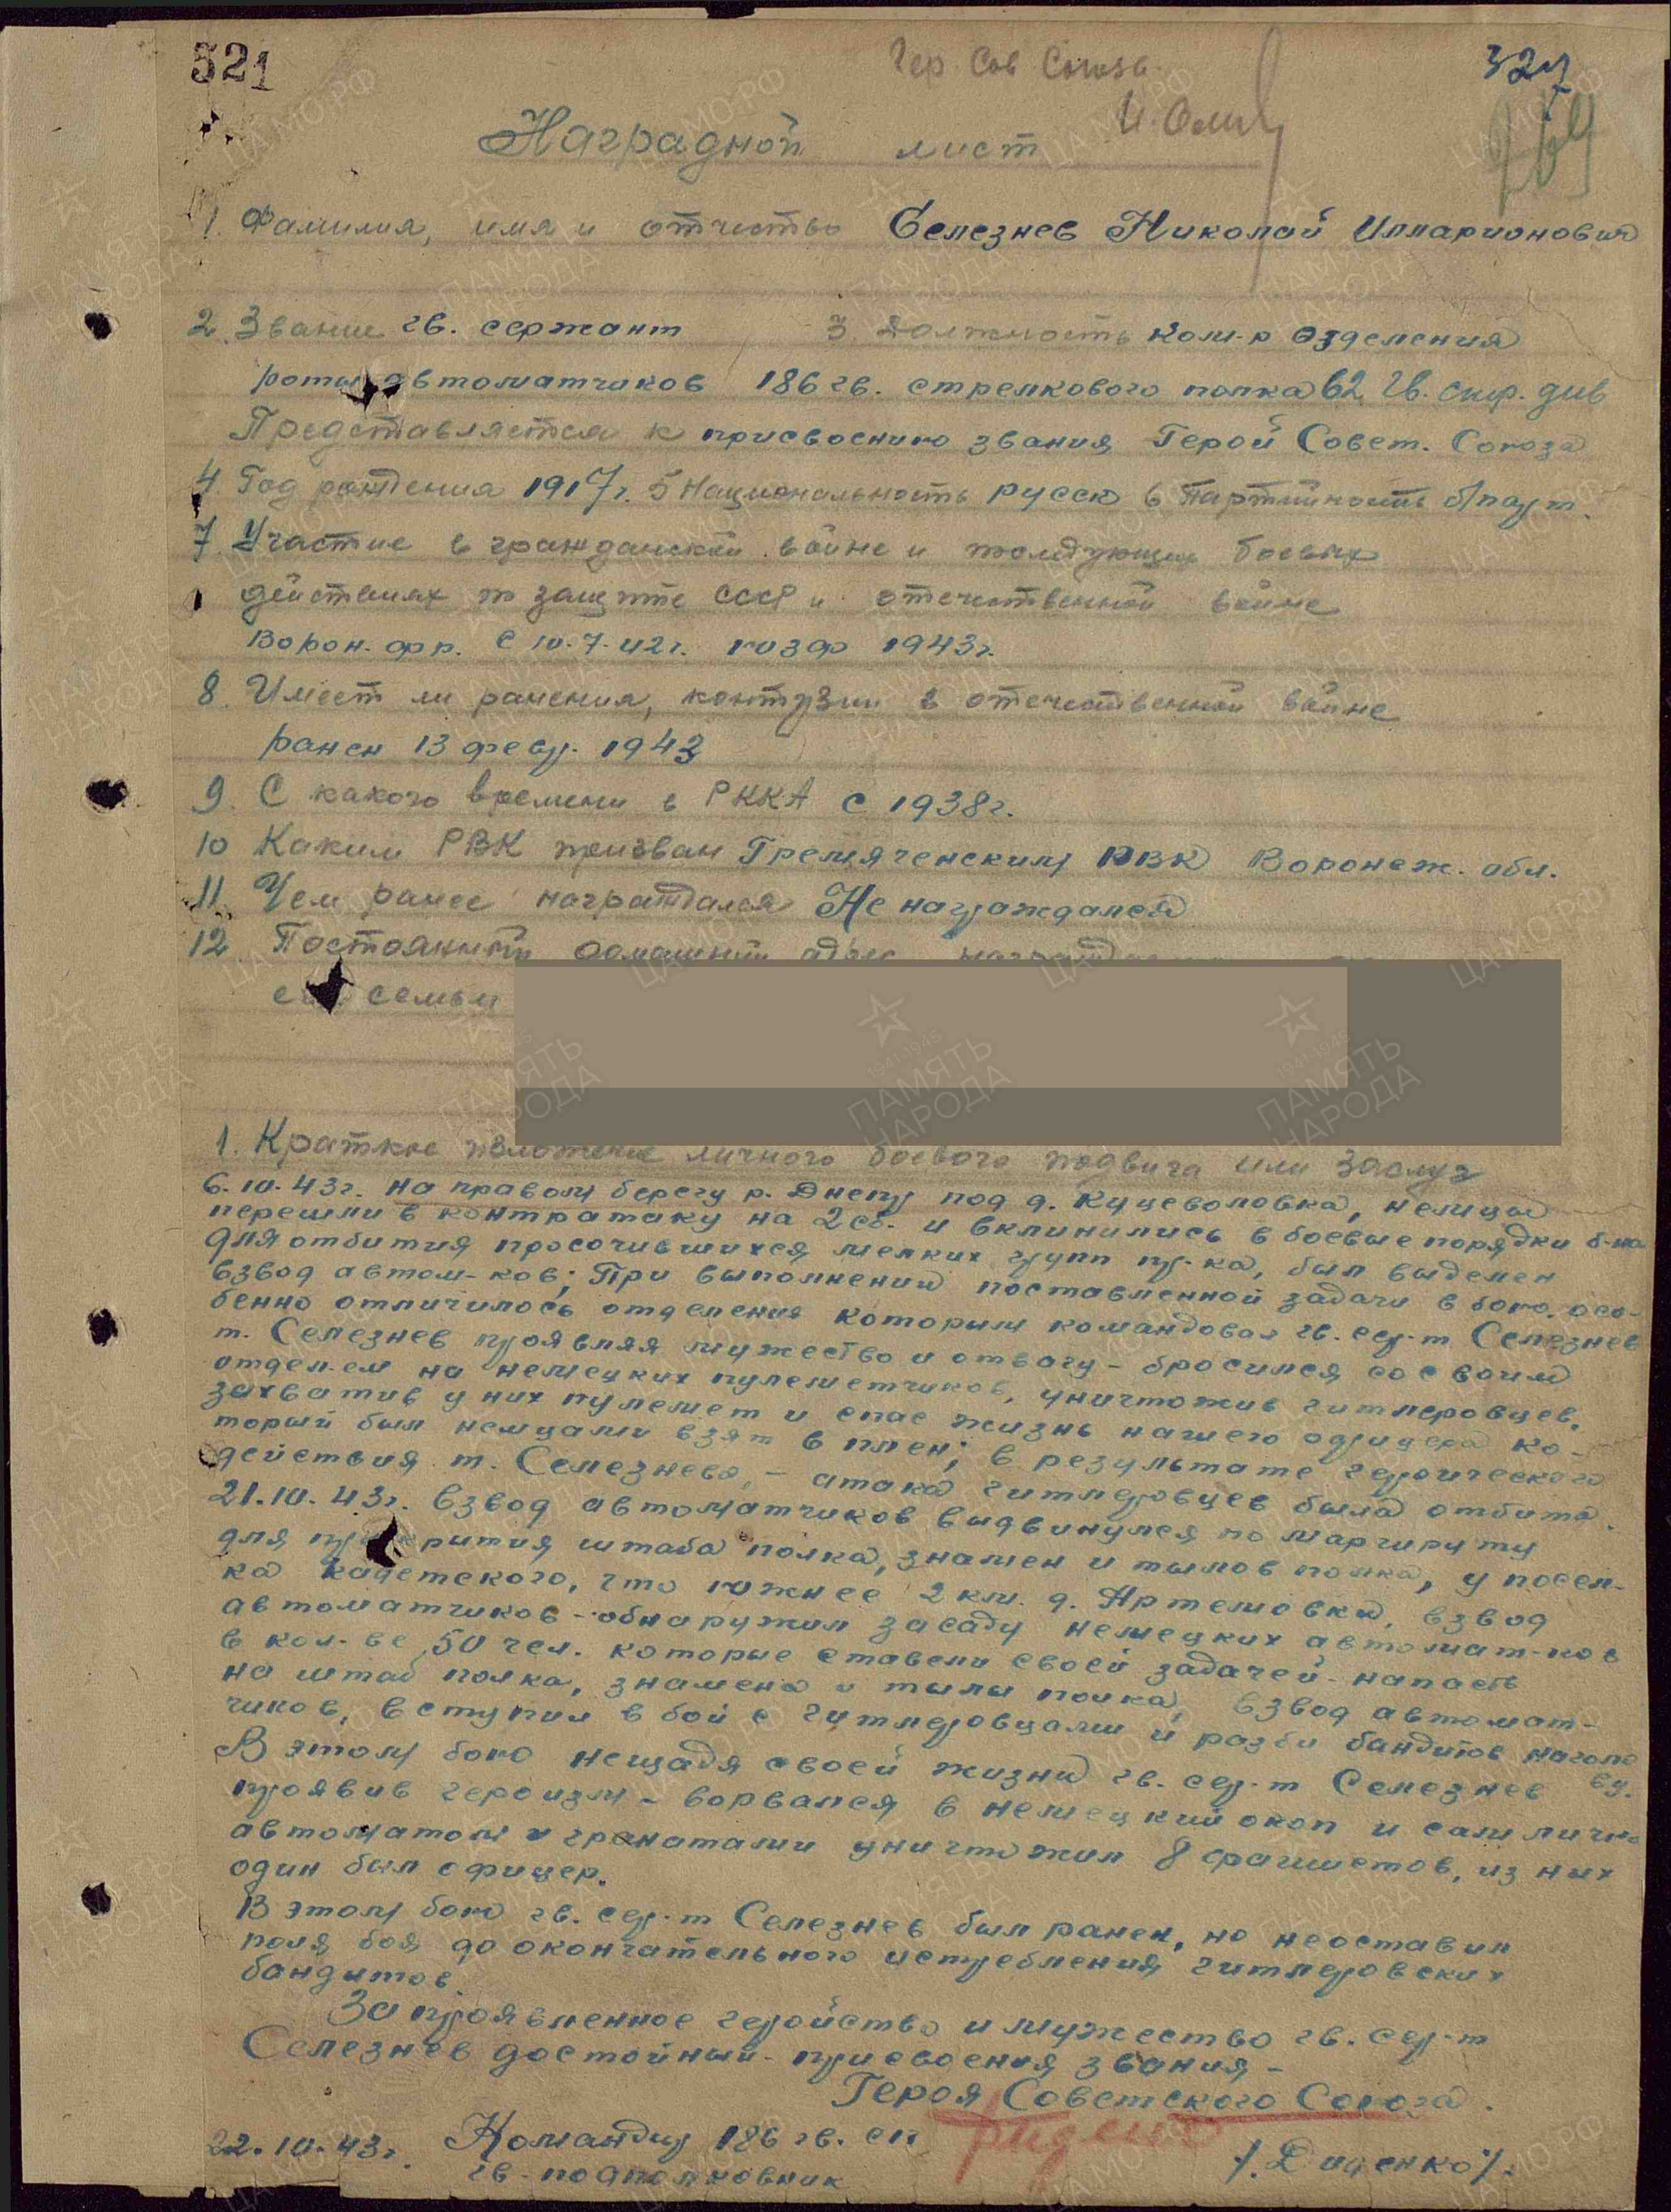 521
Гер Сов Союза
327
Наградной лист
1. Фамилия, имя и отчество Селезнев Николай Илларионович
2. Звание гв. сержант 3. Должность Ком-р отделения
роты автоматчиков 186 гв. стрелкового полка 62 гв. стр. див
Представляется к присвоению звания Герой Совет. Союза
4. Год рождения 1917г. 5 Национальность русск 6 Партийность б/парт.
7. Участие в гражданской войне и последующих боевых
действиях по защите СССР и отечественной войне
Ворон. фр. с 10.7.42г. по 1943г.
8. Имеет ли ранения, контузии в отечественной войне
ранен 13 февр. 1943
9. С какого времени в РККА с 1938г.
10 Каким РВК призван Гремяченским РВК Воронеж. обл.
11. Чем ранее награждался Не награждался
12. Постоянный домашний адрес
его семьи
1. Краткое изложение личного боевого подвига или заслуг
6.10.43г. на правом берегу р. Днепр под д. Куцеволовка, немцы
перешли в контратаку на 2 сб. и вклинились в боевые порядки б-на
для отбития просочившихся мелких групп пр-ка, был выделен
взвод автом-ков; При выполнении поставленной задачи в бою осо-
бенно отличилось отделения которым командовал гв. сер-т Селезнев
т. Селезнев проявляя мужество и отвагу - бросился со своим
отдел-ем на немецких пулеметчиков, уничтожив гитлеровцев,
захватив у них пулемет и спас жизнь нашего офицера ко-
торый был немцами взят в плен; в результате героического
действия т. Селезнева, - атака гитлеровцев была отбита.
21.10.43г. взвод автоматчиков выдвинулся по маршруту
для прикрытия штаба полка, знамен и тылов полка, у посел-
ка Кадетского, что южнее 2 км. д. Артемовка, взвод
автоматчиков - обнаружил засаду немецких автомат-ков
в кол-ве 50 чел. которые ставели своей задачей - напасть
на штаб полка, знамена и тылы полка, взвод автомат-
чиков, вступил в бой с гитлеровцами и разби бандитов наголо
ву.
В этом бою нещадя своей жизни гв. сер-т Селезнев
проявив героизм - ворвался в немецкий окоп и сам лично
автоматом и гранатами уничтожил 8 фашистов, из них
один был офицер.
В этом бою гв. сер-т Селезнев был ранен, но неоставил
поля боя до окончательного истребления гитлеровских
бандитов.
За проявленное геройство и мужество гв. сер-т
Селезнев достойный - присвоения звания -
Героя Советского Союза.
22.10.43г. Командир 186 гв. сп
гв - подполковник /. Диденко /.